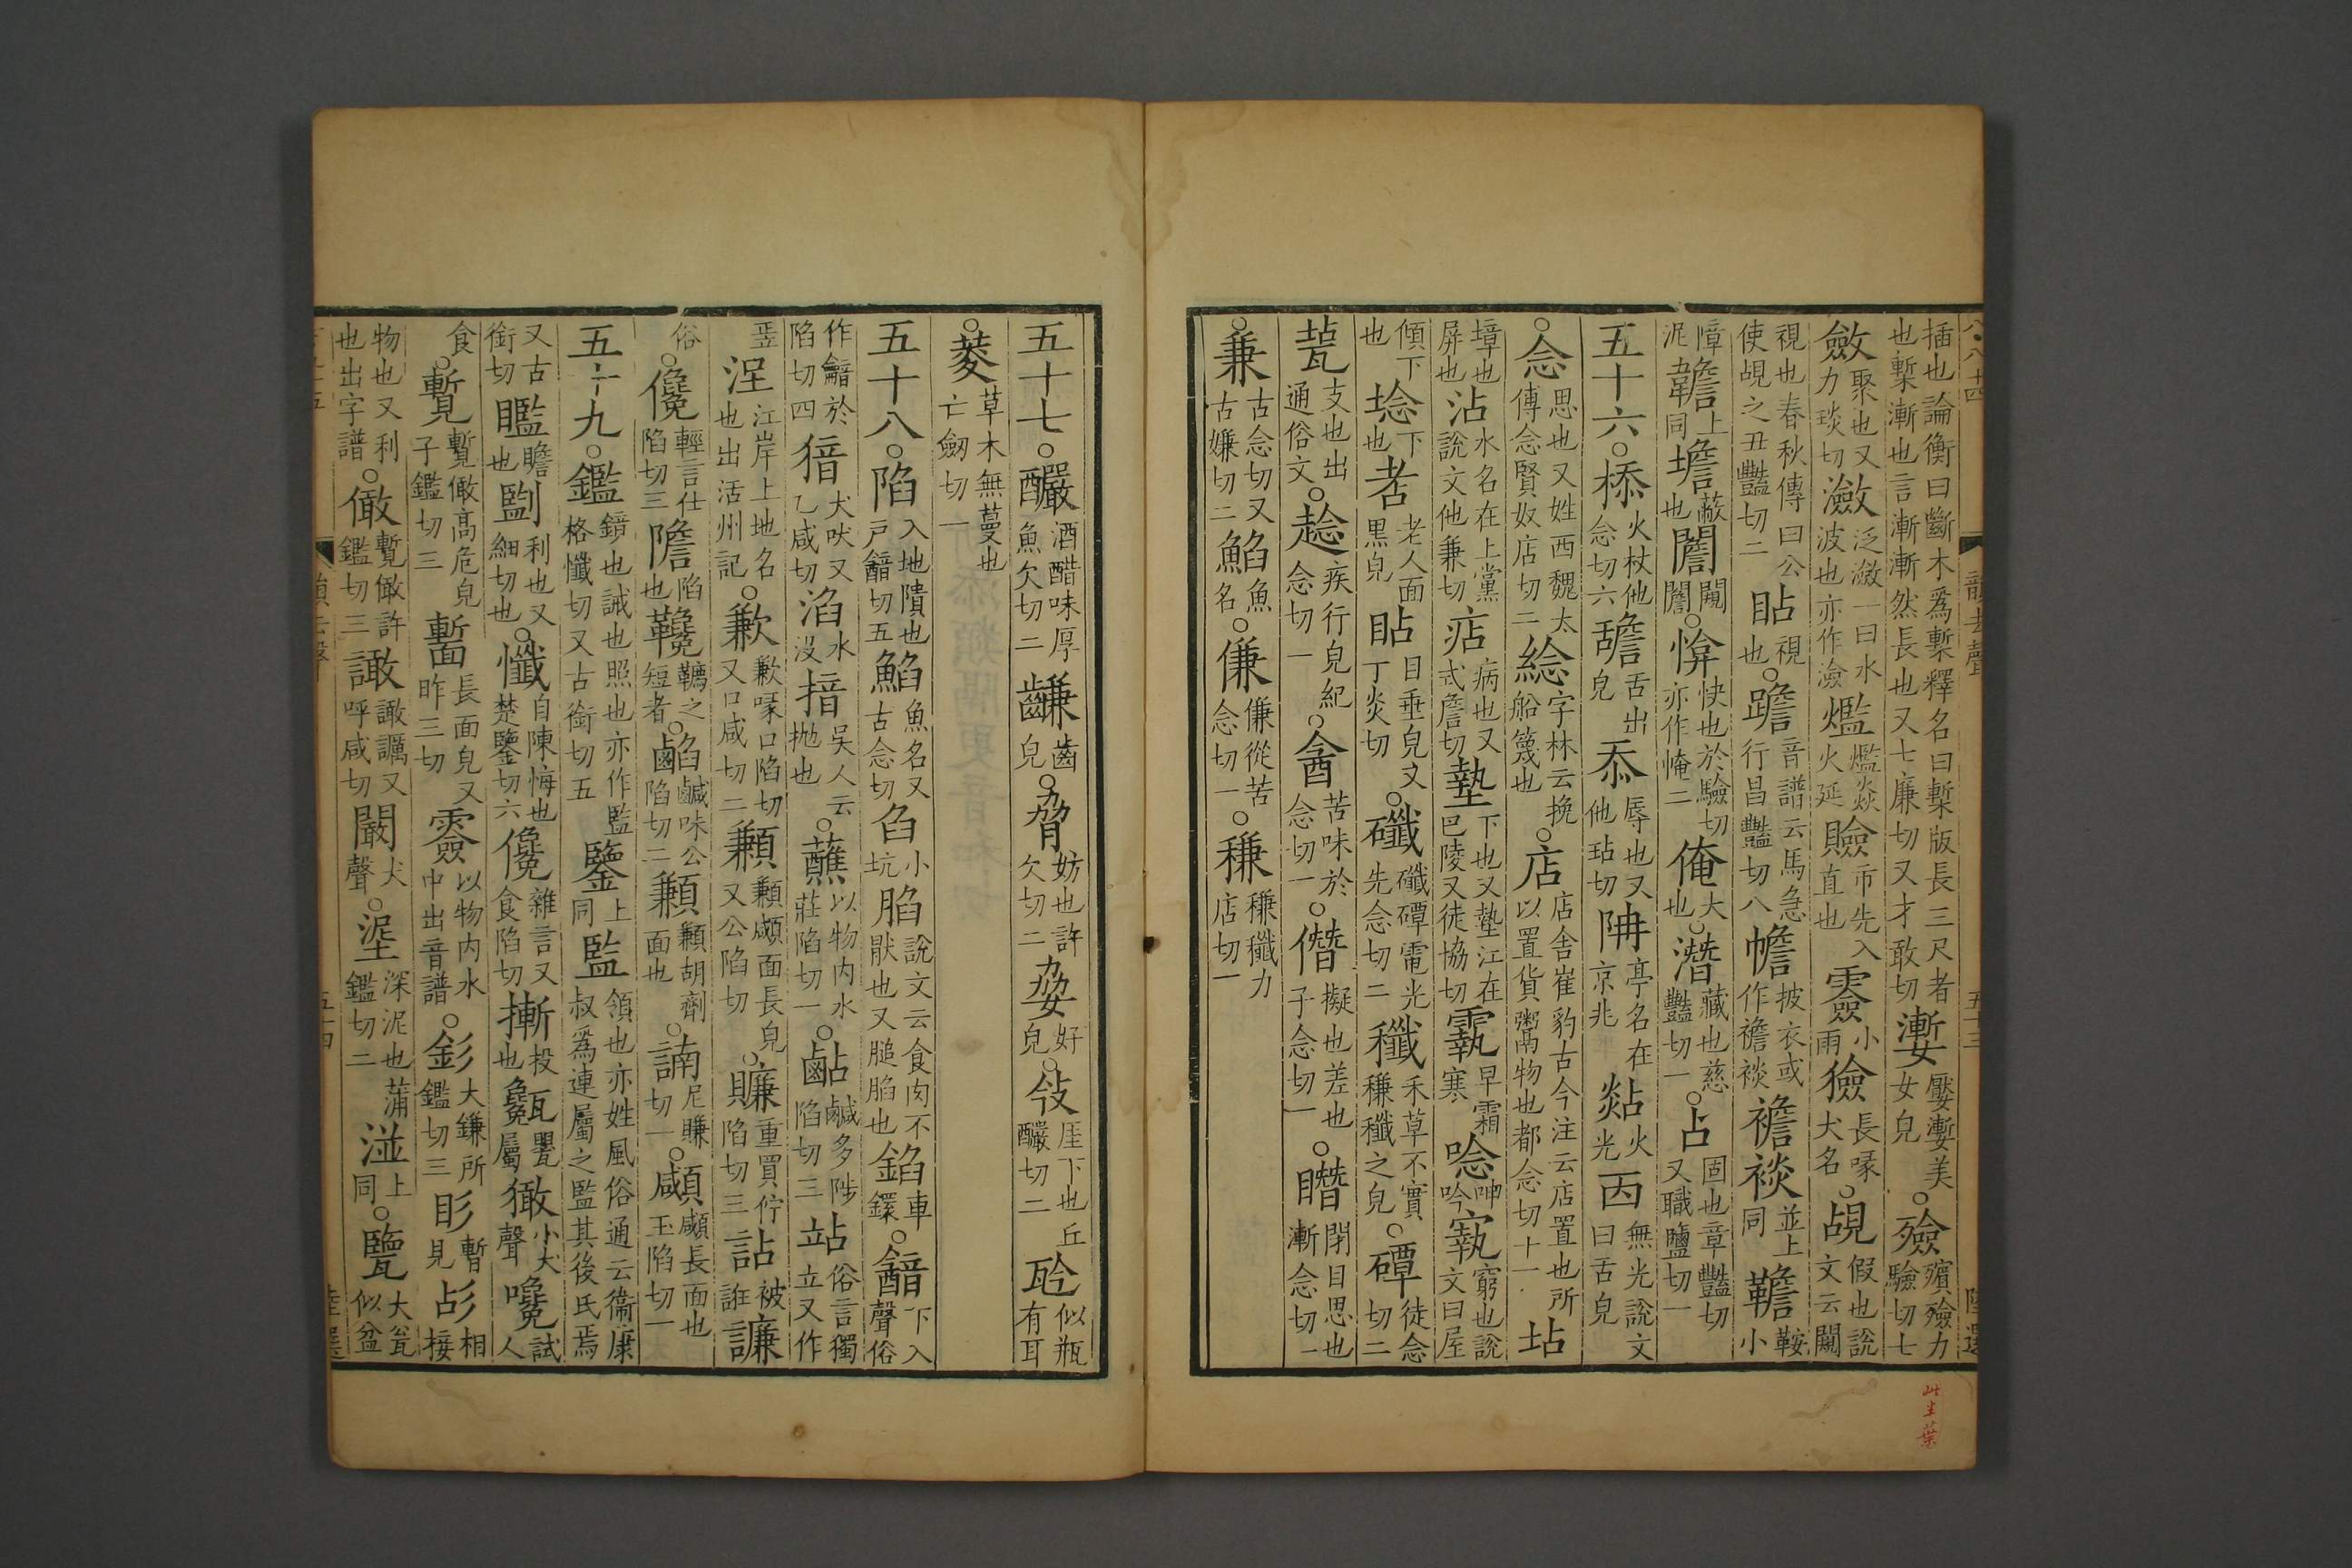 插也論衡曰斷木爲槧釋名曰槧版長三尺者也槧漸也言漸漸然長也又七廉切又才敢切㜞嬮㜞美女皃○殮殯殮力驗切七
斂聚也又力琰切瀲泛瀲一曰水波也亦作澰爁爁焱火延䝮市先入直也𩆷小雨獫長喙犬名○覘假也說文云闚
視也春秋傳曰公使覘之丑豔切二䀡視也○蹹音譜云馬急行昌豔切八幨披衣或作襜裧襜裧並上同韂鞍小
障泥𩎿上同壛蔽也闇闚闇○㤿快也於驗切亦作㤿二俺大也○潛藏也慈豔切一○占固也章豔切又職鹽切一
五十六○㮇火杖他念切六䑙舌出皃忝辱也又他玷切𨹯亭名在京兆㷠火光㐁無光說文曰舌皃
○念思也又姓西魏太傅念賢奴店切二𦁤字林云挽船篾也○店店舍崔豹古今注云店置也所以置貨鬻物也都念切十一坫
墇也屏也沾水名在上黨說文他兼切痁病也又式詹切墊下也又墊江在巴陵又徒協切霵早霜寒唸呻吟㝪窮也說文曰屋
傾下也埝下也㸃老人面黑皃䀡目垂皃又丁炎切○磩磩磹電光先念切二䆎䅐䆎禾草不實䅐䆎之皃○磹徒念切二
㼭支也出通俗文○趝疾行皃紀念切一○酓苦味於念切一○僭擬也差也子念切一○㬱閉目思也漸念切一
○兼古念切又古嫌切二鮥魚名○傔傔從苦念切一○稴稴䆎力店切一
五十七○釅酒醋味厚魚欠切二𪙊齒皃○脅妨也許欠切二㛍好皃○㪁厓下也丘釅切二㼤似瓶有耳
○菱草木無蔓也亡劒切一
五十八○陷入地隤也戶韽切五鮥魚名又古念切臽小坑䐄說文云食肉不猒也又膇䐄也錎車鏍○韽下入聲俗
作韽於陷切四猎犬吠又乙咸切淊水沒揞吳人云拋也○蘸以物內水莊陷切一○䶢鹹多陟陷切三站俗言獨立又作
𡋲湴江岸上地名也出活州記○歉歉喙口陷切又口咸切二顩顩顑面長皃又公陷切○賺重買佇陷切三詀被誑譧
俗○儳輕言仕陷切三㯯陷也䪌韉之短者○𪉹鹹味公陷切二顩顩胡劑面也○諵尼賺切一○顑顑長面也玉陷切一
五十九○鑑鏡也誡也照也亦作監格懺切又古銜切五鑒上同監領也亦姓風俗通云衞康叔爲連屬之監其後氏焉
又古銜切𥌈瞻也劗利也又細切也○懺自陳悔也楚鑒切六儳雜言又食陷切摲投也㽊甖屬㺝小犬聲嚵試人
食○覱覱㒈高危皃子鑑切三䭕長面皃又昨三切霮以物內水中出音譜○釤大鎌所鑑切三䀐暫見㣌相接
物也又利也出字譜○㒈覱㒈許鑑切三譀譀譀又呼咸切㘚犬聲○埿深泥也蒲鑑切二湴上同○覽大瓮似盆
此半葉